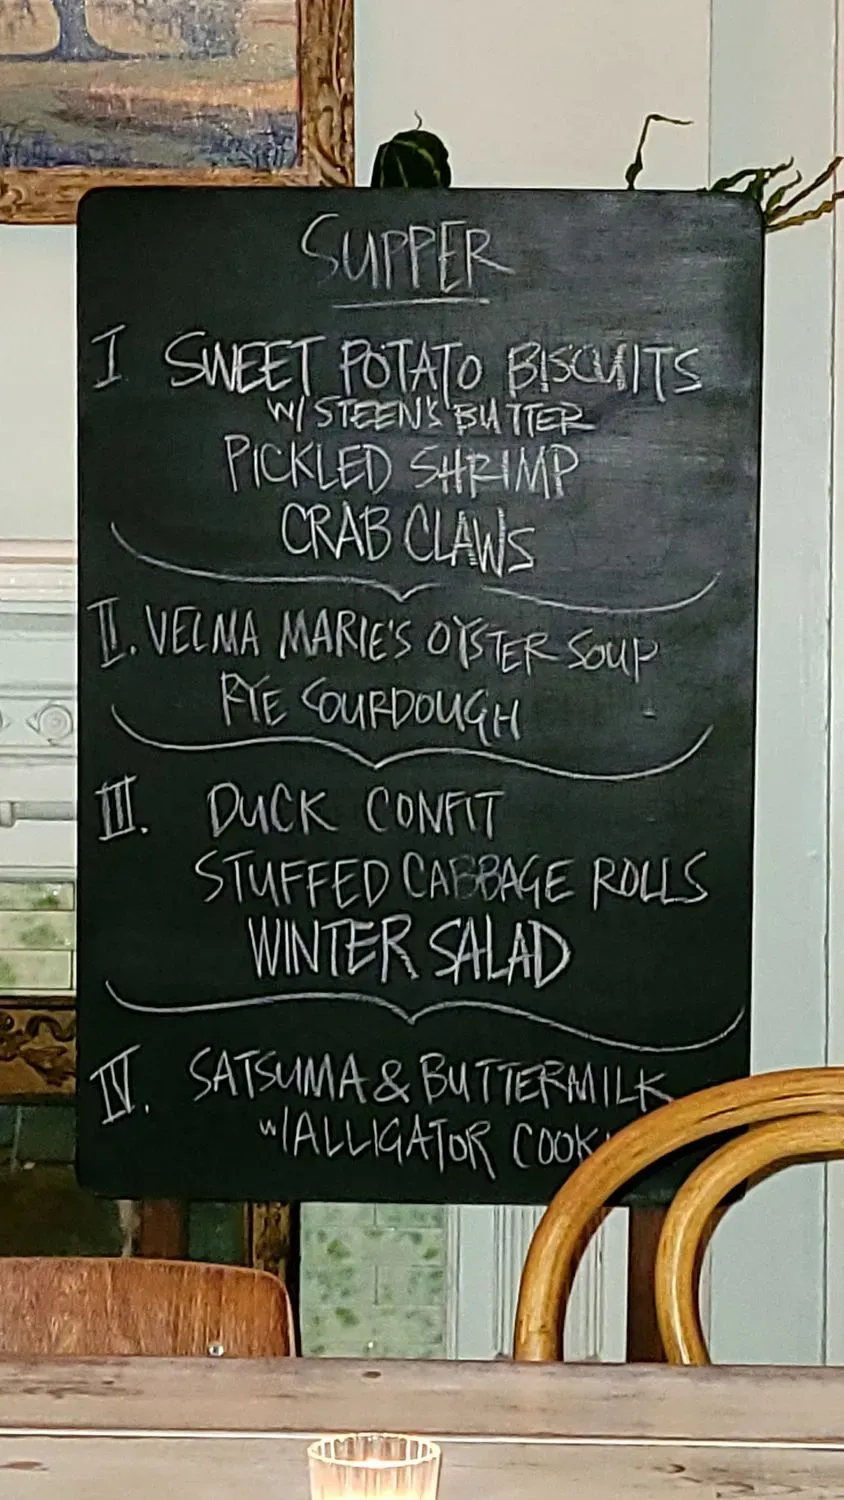 SUPPER
I SWEET POTATO BISCUITS
W/ STEEN'S BUTTER
PICKLED SHRIMP
CRAB CLAWS
II. VELMA MARIE'S OYSTER SOUP
RYE SOURDOUGH
III. DUCK CONFIT
STUFFED CABBAGE ROLLS
WINTER SALAD
IV. SATSUMA & BUTTERMILK
W/ ALLIGATOR